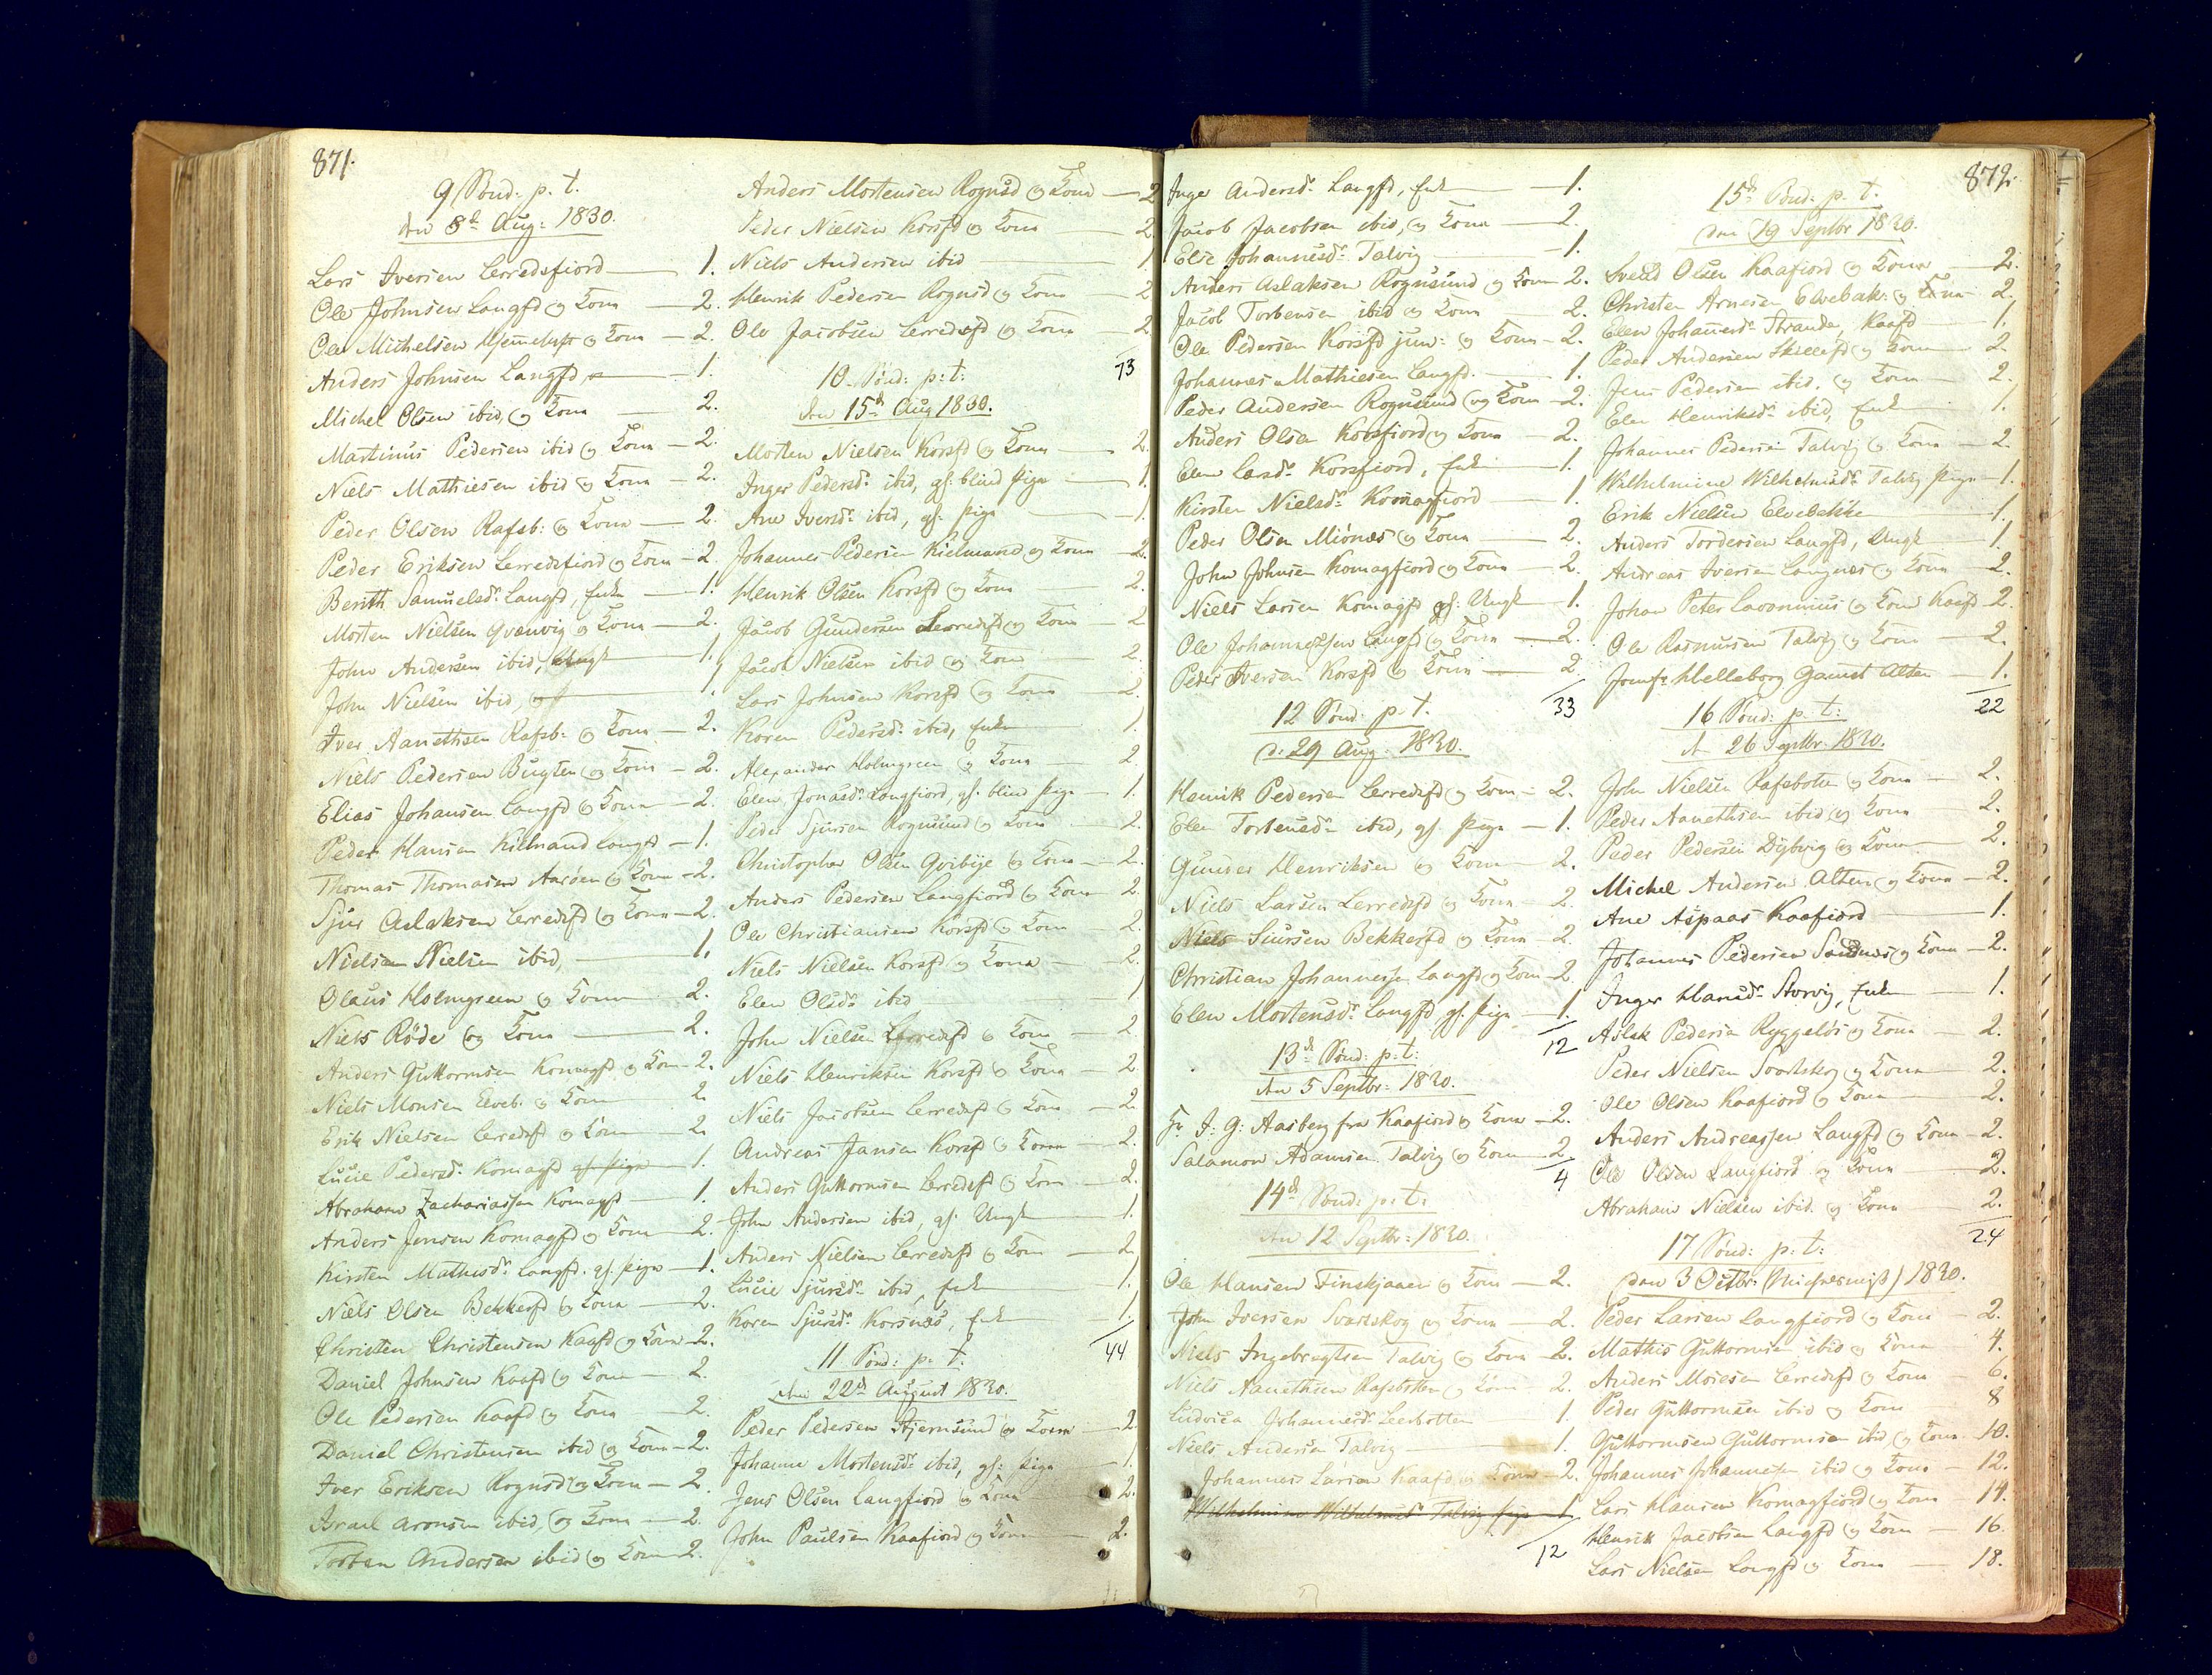 871.
9 Sønd: p. t.
den 8de Aug: 1830.
Lars Iversen Lerredsfiord — 1.
Ole Johnsen Langfd og Kona — 2.
Ole Michelsen og Kona — 2.
Anders Johnsen Langfd — 1.
Michel Olsen ibid, og Kona — 2.
Martinus Pedersen ibid og Kona — 2.
Niels Mathiesen ibid og Kona — 2.
Peder Olsen Rafsb: og Kona — 2.
Peder Eriksen Lerredsfiord og Kona — 2.
Berith Samuelsdr Langfd, Enke — 1.
Morten Nielsen Qvænvig og Kona — 2.
John Andersen ibid, Ungk — 1.
John Nielsen ibid, — 1.
Iver Aanethsen Rafsb: og Kona — 2.
Niels Pedersen Bugten og Kona — 2.
Elias Johansen Langfd og Kona — 2.
Peder Hansen Kilmand Langfd — 1.
Thomas Thomasen Aarøen og Kona — 2.
Sjur Aslaksen Lerredsfd og Kona — 2.
Nielsen Nielsen ibid, — 1.
Olaus Holmgreen og Kona — 2.
Niels Røde og Kona — 2.
Anders Guttormsen Komagfd og Kona — 2.
Niels Monsen Elveb: og Kona 2.
Erik Nielsen Lerredsfd og Kona — 2.
Lucie Pedersdr Komagfd gf. Pige — 1.
Abraham Zachariassen Komagfd — 1.
Anders Jensen Komagfd og Kona — 2.
Kirsten Mathisdr Langfd. gf. Pige — 1.
Niels Olsen Bekkerfd og Kona — 2.
Christen Christensen Kaafd og Kona — 2.
Daniel Johnsen Kaafd og Kona — 2.
Ole Pedersen Kaafd og Kona — 2.
Daniel Christensen ibid og Kona — 2.
Iver Eriksen Rognsd og Kona — 2.
Israel Aronsen ibid, og Kona — 2.
Torben Andersen ibid og Kona 2.
Anders Mortensen Rognsd og Kona — 2
Peder Nielsen Korsfd og Kona — 2.
Niels Andersen ibid — 1
Henrik Pedersen Rognsd og Kona — 2
Ole Jacobsen Lerredsfd og Kona — 2.
73
10 Sønd: p: t:
den 15de Aug 1830.
Morten Nielsen Korsfd og Kona — 2.
Inger Pedersdr ibid, gf: blind Pige — 1.
Ane Iversdr ibid, gf. Pige — 1.
Johannes Pedersen Kielmand og Kona 2.
Henrik Olsen Korsfd og Kona 2.
Jacob Gundersen Lerredsfd og Kona — 2
Jacob Nielsen ibid og Kona 2.
Lars Johnsen Korsfd og Kona — 2.
Karen Pedersdr ibid, Enke 1.
Alexander Holmgreen og Kona — 2.
Elen Jonasdr Langfiord, gf. blind Pige — 1.
Peder Sjursen Rognsund og Kona — 2.
Christopher Olsen Qvibije og Kona — 2.
Anders Pedersen Langfiord og Kona 2.
Ole Christiansen Korsfd og Kona — 2.
Niels Nielsen Korsfd og Kona — 2.
Elen Olsdr ibid — 1
John Nielsen Lerredsfd og Kona — 2
Niels Henriksen Korsfd og Kona — 2
Niels Jacobsen Lerredsfd og Kona — 2
Andreas Jansen Korsfd og Kona — 2.
Anders Guttormsen Lerredsfd og Kona — 2.
John Andersen ibid, gf. Ungk — 1.
Anders Nielsen Lerredsfd og Kona — 2.
Lucie Sjursdr ibid, Enke — 1.
Karen Sjursdr Korsnæs, Enke — 1.
44
11 Sønd: p. t.
den 22de August 1830.
Peder Pedersen Stjernsund og Kona — 2.
Johanne Mortensdr ibid, gf: Pige — 1.
Jens Olsen Langfiord og Kona 2.
John Paulsen Kaafiord og Kona — 2.
Inger Andersdr Langfd, Enke — 1.
Jacob Jacobsen ibid, og Kona — 2.
Else Johannesdr Talvig — 1.
Anders Aslaksen Rognsund og Kona 2.
Jacob Torbensen ibid og Kona — 2.
Ole Pedersen Korsfd jun: og Kona — 2.
Johannes Mathiesen Langfd. — 1.
Peder Andersen Rognsund og Kona — 2.
Anders Olsen Korsfiord og Kona — 2.
Elen Larsdr Korsfiord, Enke — 1.
Kirsten Nielsdr Komagfiord — 1.
Peder Olsen Miønæs og Kona — 2.
John Johnsen Komagfiord og Kona — 2.
Niels Larsen Komagfd gf: Ungk — 1.
Ole Johannessen Langfd og Kona — 2.
Peder Iversen Korsfd og Kona — 2.
33
12 Sønd: p. t.
d: 29 Aug: 1830.
Henrik Pedersen Lerredsfd og Kona — 2.
Elen Torbensdr ibid, gf. Pige — 1.
Gunder Henriksen og Kona — 2.
Niels Larsen Lerredsfd og Kona — 2.
Niels Siursen Bekkerfd og Kona — 2.
Christian Johannessen Langfd og Kona — 2.
Elen Mortensdr Langfd gf. Pige — 1.
12
13de Sønd: p: t:
den 5 Septbr: 1830.
Hr I: G: Aasberg fra Kaafiord og Kona — 2.
Salamon Adamsen Talvig og Kona — 2
4
14de Sønd: p: t:
den 12 Septbr: 1830.
Ole Hansen Finskjaaen og Kona — 2.
John Iversen Svartskog og Kona — 2.
Niels Ingebregtsen Talvig og Kona 2.
Niels Aanethsen Rafsbotten og Kona — 2.
Ludvica Johannesdr Leerbotten — 1.
Niels Andersen Talvig — 1.
Johannes Larsen Kaafd og Kona — 2.
Wilhelmine Wilhelmsdr Talvig Pige — 1
12
872.
15de Sønd: p. t.
den 19 Septbr 1830.
Svend Olsen Kaafiord og Kona — 2.
Christen Arnesen Elvebak: og Kona 2.
Elen Johannesdr Strande, Kaafd — 1.
Peder Andersen Skillefd og Kona — 2
Jens Pedersen ibid. og Kona — 2.
Elen Henriksdr ibid, Enke — 1.
Johannes Pedersen Talvig og Kona — 2
Wilhelmine Wilhelmsdr Talvig Pige — 1.
Erik Nielsen Elvebakke — 1.
Anders Tordersen Langfd, Ungk — 1.
Andreas Iversen Langnæs og Kona — 2.
Johan Peter Lavonnius og Kona Kaafd 2.
Ole Rasmusen Talvig og Kona — 2.
Jomfr Helleborg Gamst Alten — 1.
22
16 Sønd: p. t:
d. 26 Septbr: 1830.
John Nielsen Rafsbotten og Kona — 2.
Peder Aanethsen ibid og Kona 2.
Peder Pedersen Dybvig og Kona — 2.
Michel Andersen Alten og Kona — 2.
Ane Aspaas Kaafiord — 1.
Johannes Pedersen Sandnæs og Kona — 2.
Inger Hansdr Storvig, Enke — 1.
Aslak Pedersen og Kona — 2.
Peder Nielsen Svartskog og Kona — 2.
Ole Olsen Kaafiord og Kona — 2.
Anders Andreassen Langfd og Kona — 2.
Ole Olsen Langfiord og Kona — 2.
Abraham Nielsen ibid. og Kona — 2.
24
17 Sønd: p. t:
den 3 Octbr: (Michaelsmiss) 1830.
Peder Larsen Langfiord og Kona — 2.
Mathis Guttormsen ibid og Kona 4.
Anders Mosesen Lerredsfd og Kona — 6.
Peder Guttormsen ibid og Kona 8
Guttormsen Guttormsen ibid, og Kona 10.
Johannes Johannesen ibid og Kona — 12.
Lars Hansen Komagfiord og Kona — 14.
Henrik Jacobsen Langfd og Kona — 16.
Lars Nielsen Langfd og Kona — 18.